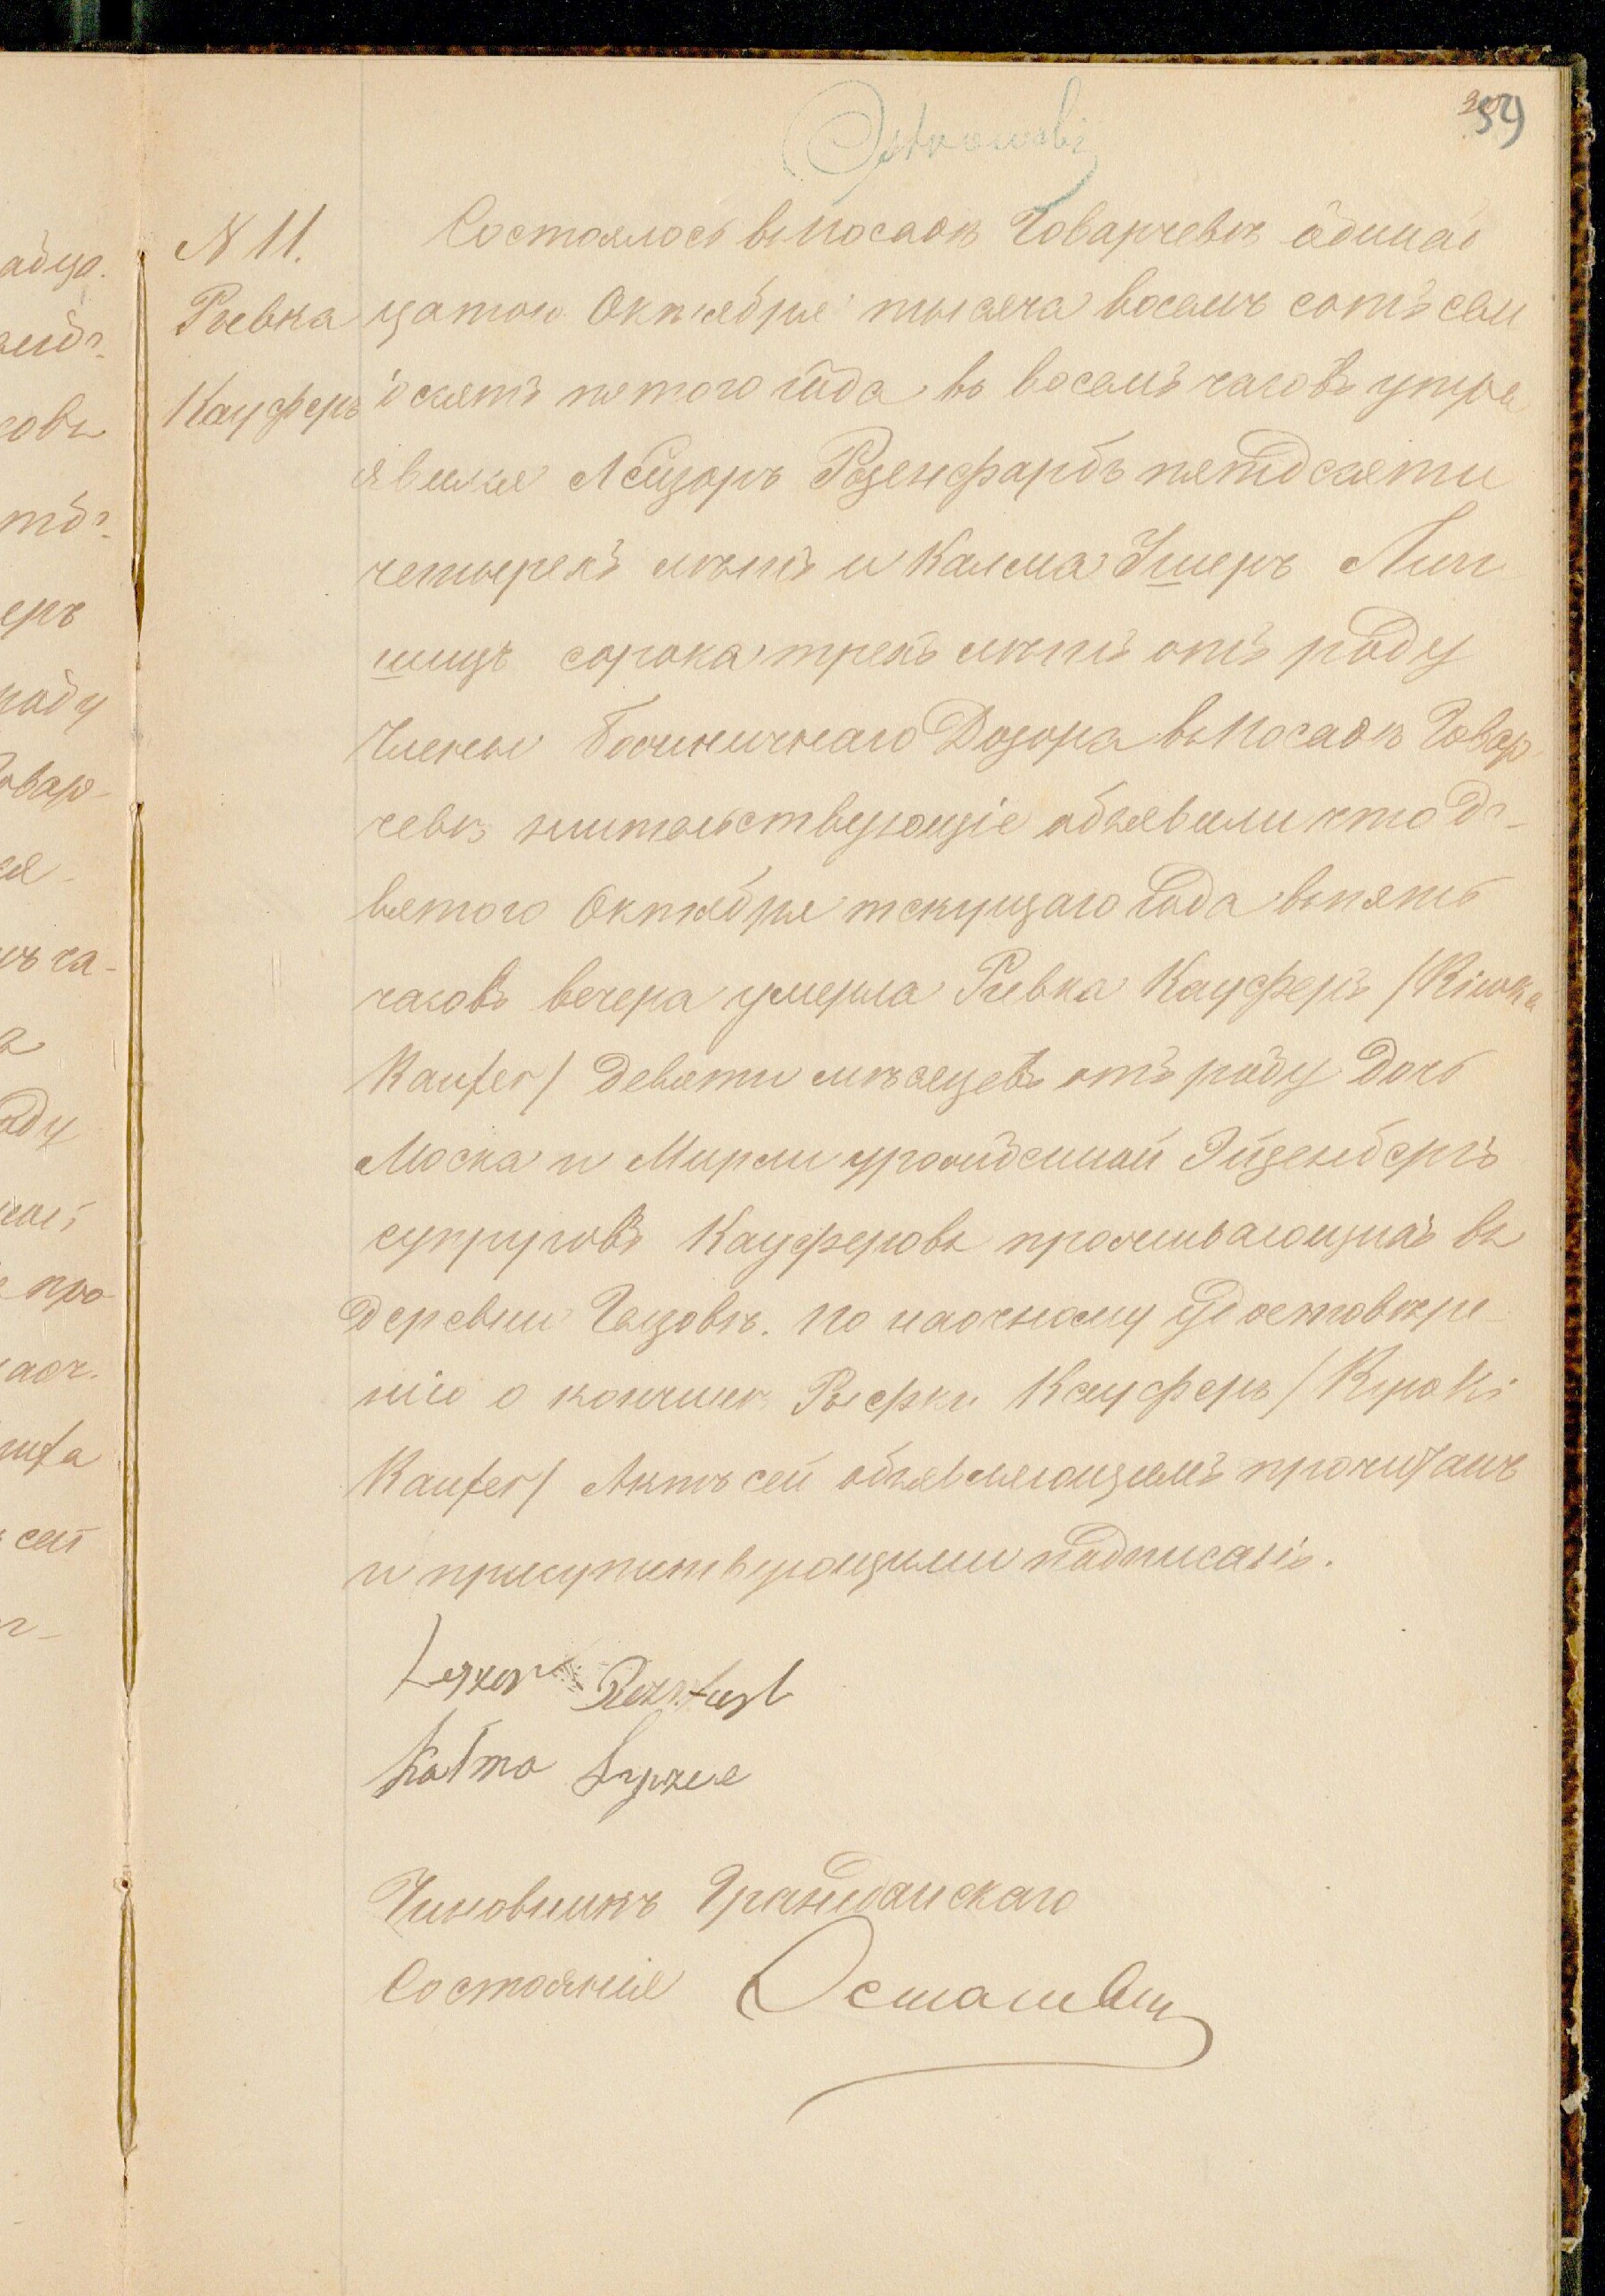 59
N 11.
Рывка
Кауферъ
Состоялось въ посадѣ Говарчевѣ одинад
цатого Октября тысяча восемь сотъ сем
десятъ пятого года въ восемъ часовъ утра
явился Лейзоръ Розенфарбъ пятдесяти
четырехъ лѣтъ и Калма Ушеръ Лип
шицъ сорока трехъ лѣтъ отъ роду
Члены Божничнаго Дозора въ посадѣ Говар
чевѣ жительствующіе объявили что де-
вятого Октября текущаго Года въ пять
часовъ вечера умерла Рывка Кауферъ /Riwka
Kaufer/ девяти мѣсяцевъ отъ роду дочь
Моска и Мирли урожденной Эйзенбергъ
супруговъ Кауферовъ проживающихъ въ
деревни Газовѣ. По наочному удостовѣре-
нію о кончинѣ Рыфки Кауферъ / Ryfki
Kaufer/ Актъ сей объявляющимъ прочитанъ
и присутствующими подписанъ.
Leyzor Rozenfarb
Kalma
Чиновникъ Гражданскаго
Состоянія